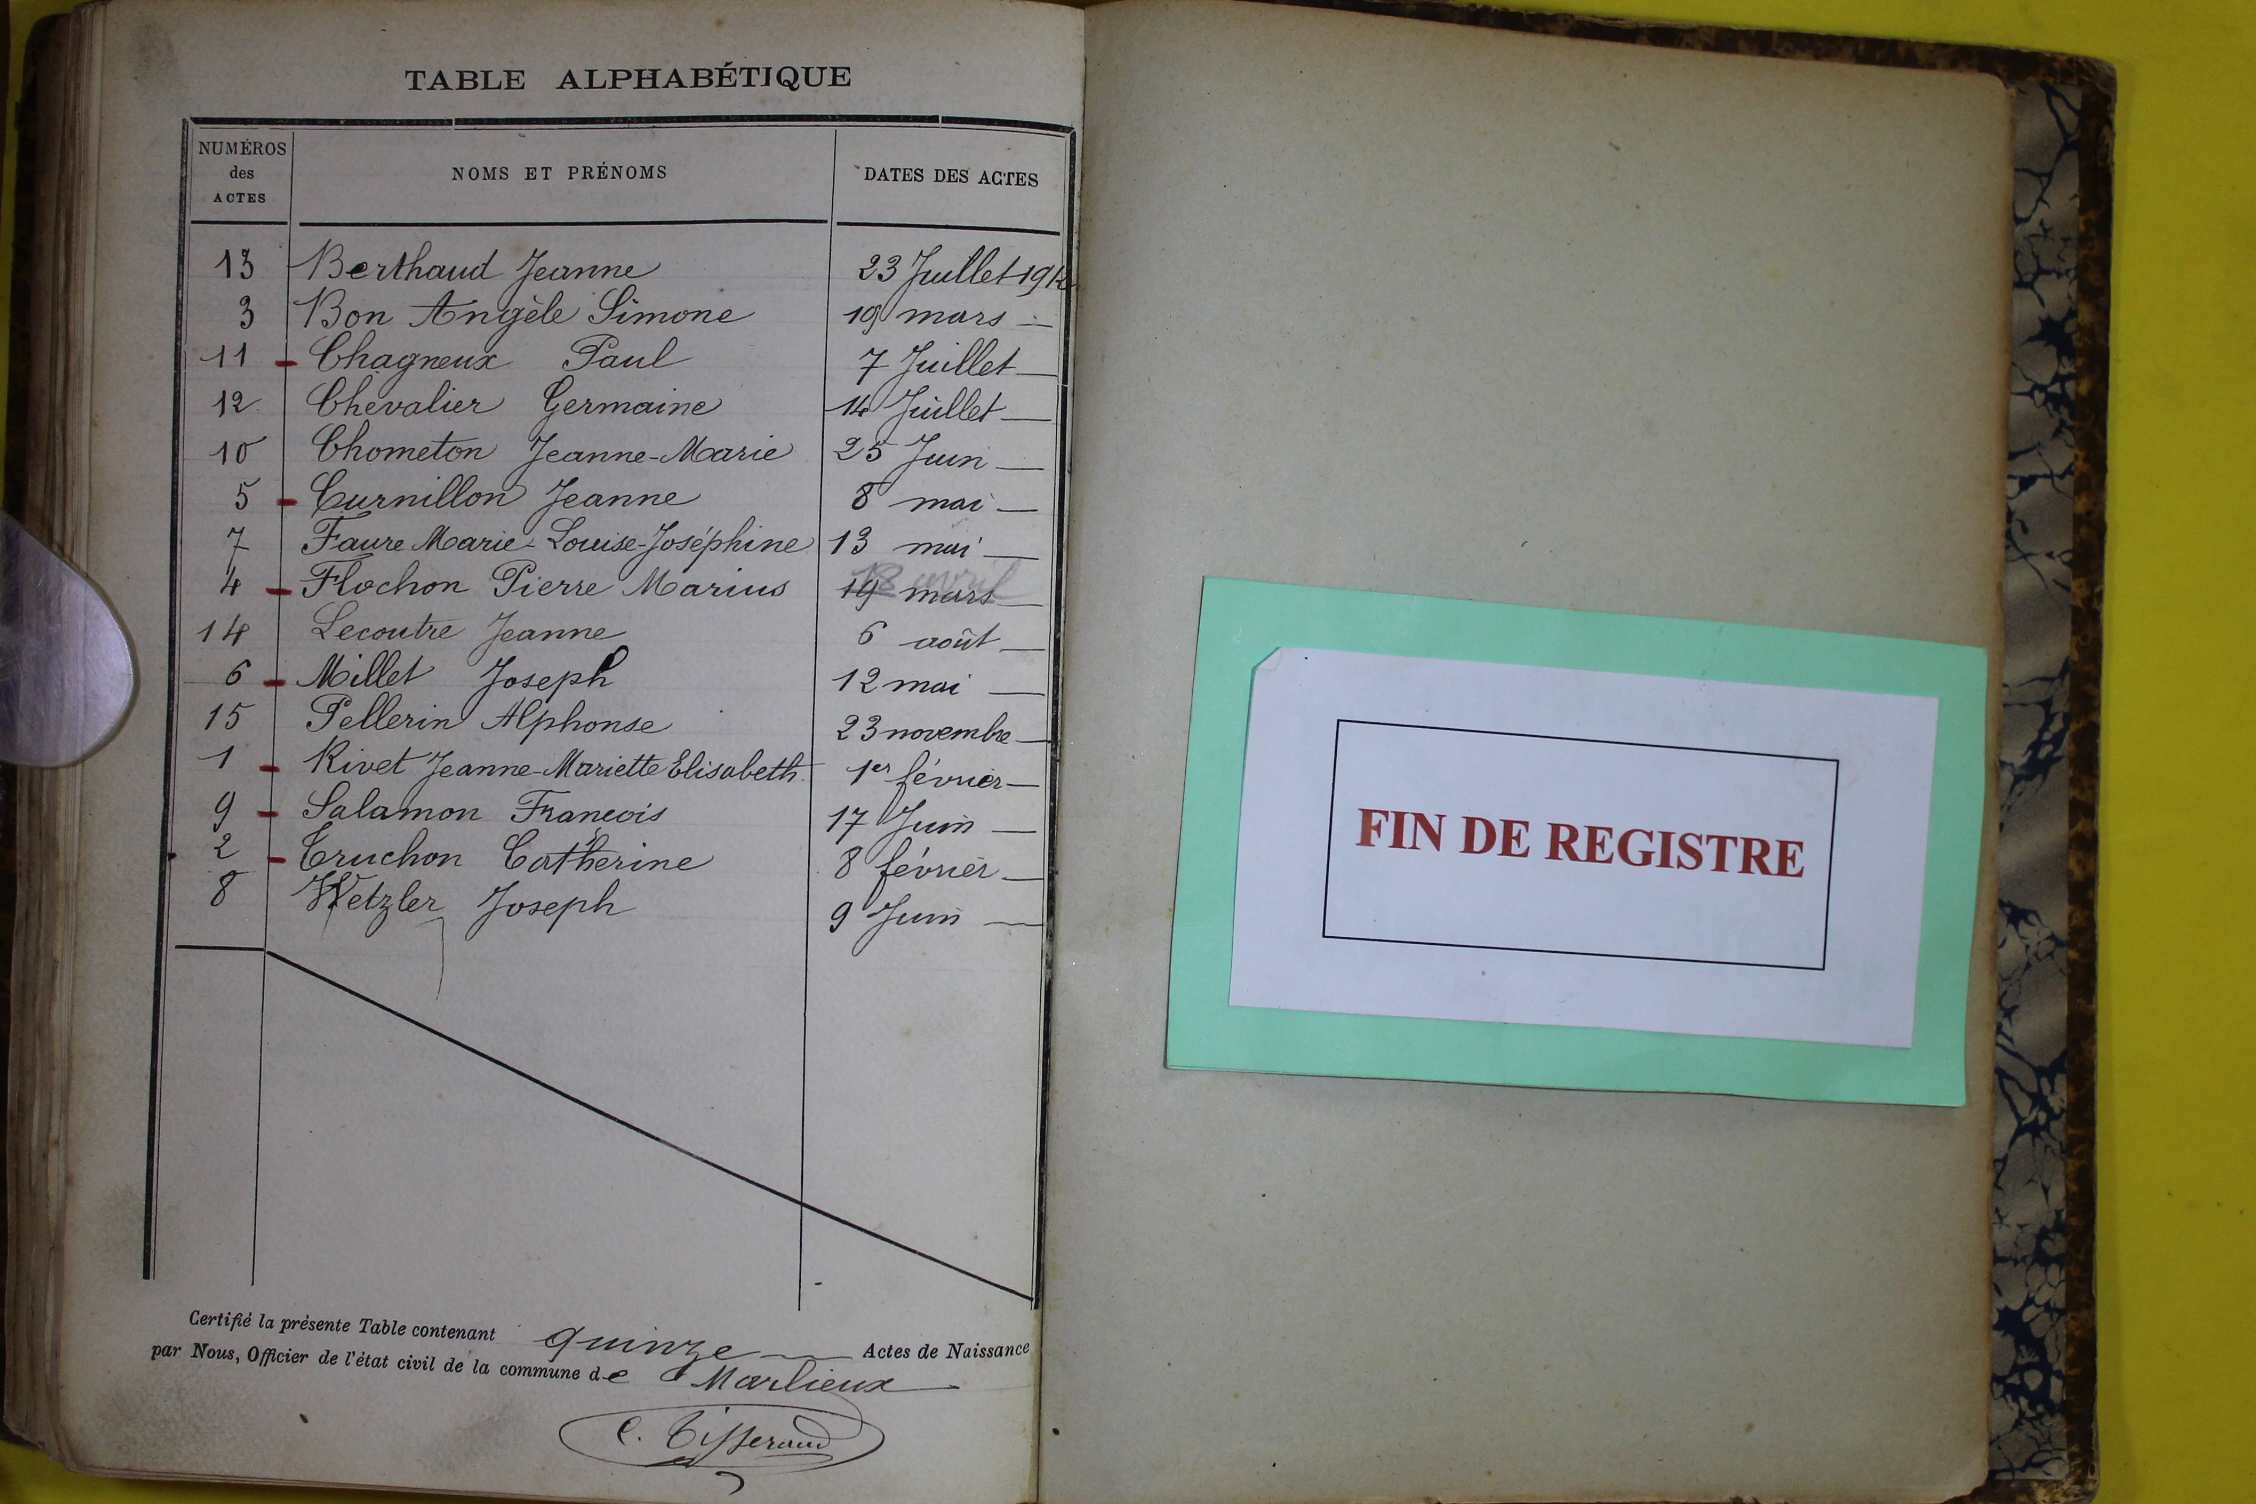 TABLE ALPHABÉTIQUE
NUMÉROS des ACTES NOMS ET PRÉNOMS DATES DES ACTES
13 Berthaud Jeanne 23 Juillet
3 Bon Angèle Simone 19 mars —
11 - Chagneux Paul 7 Juillet —
12 Chevalier Germaine 14 Juillet —
10 Chometon Jeanne-Marie 25 Juin —
5 - Curnillon Jeanne 8 mai —
7 Faure Marie-Louise-Joséphine 13 mai —
18 avril
4 - Flochon Pierre Marius 19 mars —
14 Lecoutre Jeanne 6 août —
6 - Millet Joseph 12 mai —
15 Pellerin Alphonse 23 novembre —
1 - Rivet Jeanne-Mariette Elisabeth 1er février —
9 - Salamon François 17 Juin —
2 - Truchon Catherine 8 février —
8 Wetzler Joseph 9 Juin —
Certifié la présente Table contenant quinze — Actes de Naissance
par Nous, Officier de l'état civil de la commune de Marlieux
C. Tisserand
FIN DE REGISTRE